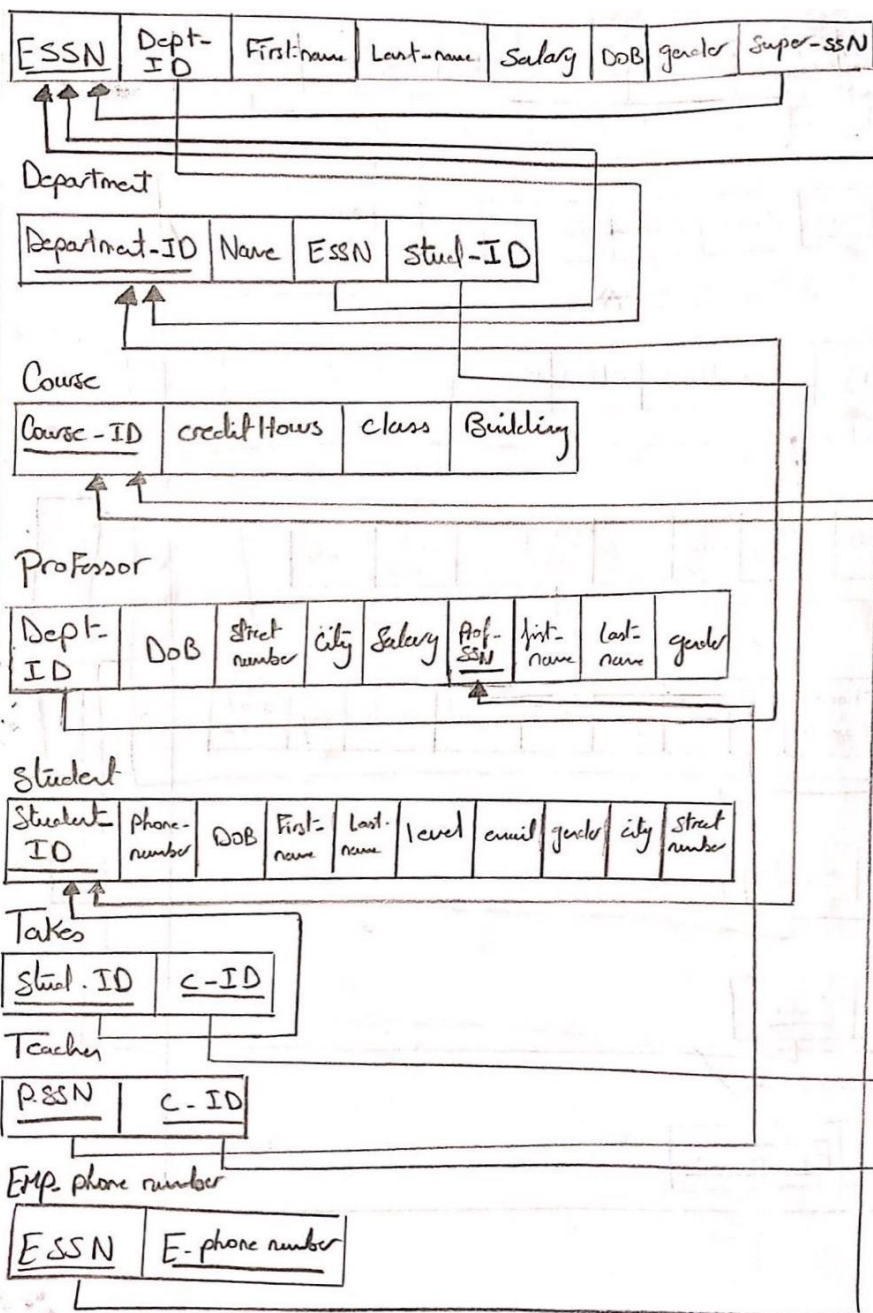 ESSN Dept-ID First-name Last-name Salary DOB gender Super-SSN
Department
Department-ID Name ESSN Stud-ID
Course
Course-ID credit Hours class Building
Professor
Dept-ID DOB street number city Salary Prof-SSN first-name Last-name gender
Student
Student-ID Phone-number DOB First-name Last-name level email gender city street number
Takes
Stud.ID C-ID
Teacher
P.SSN C-ID
EMP-phone number
ESSN E-phone number